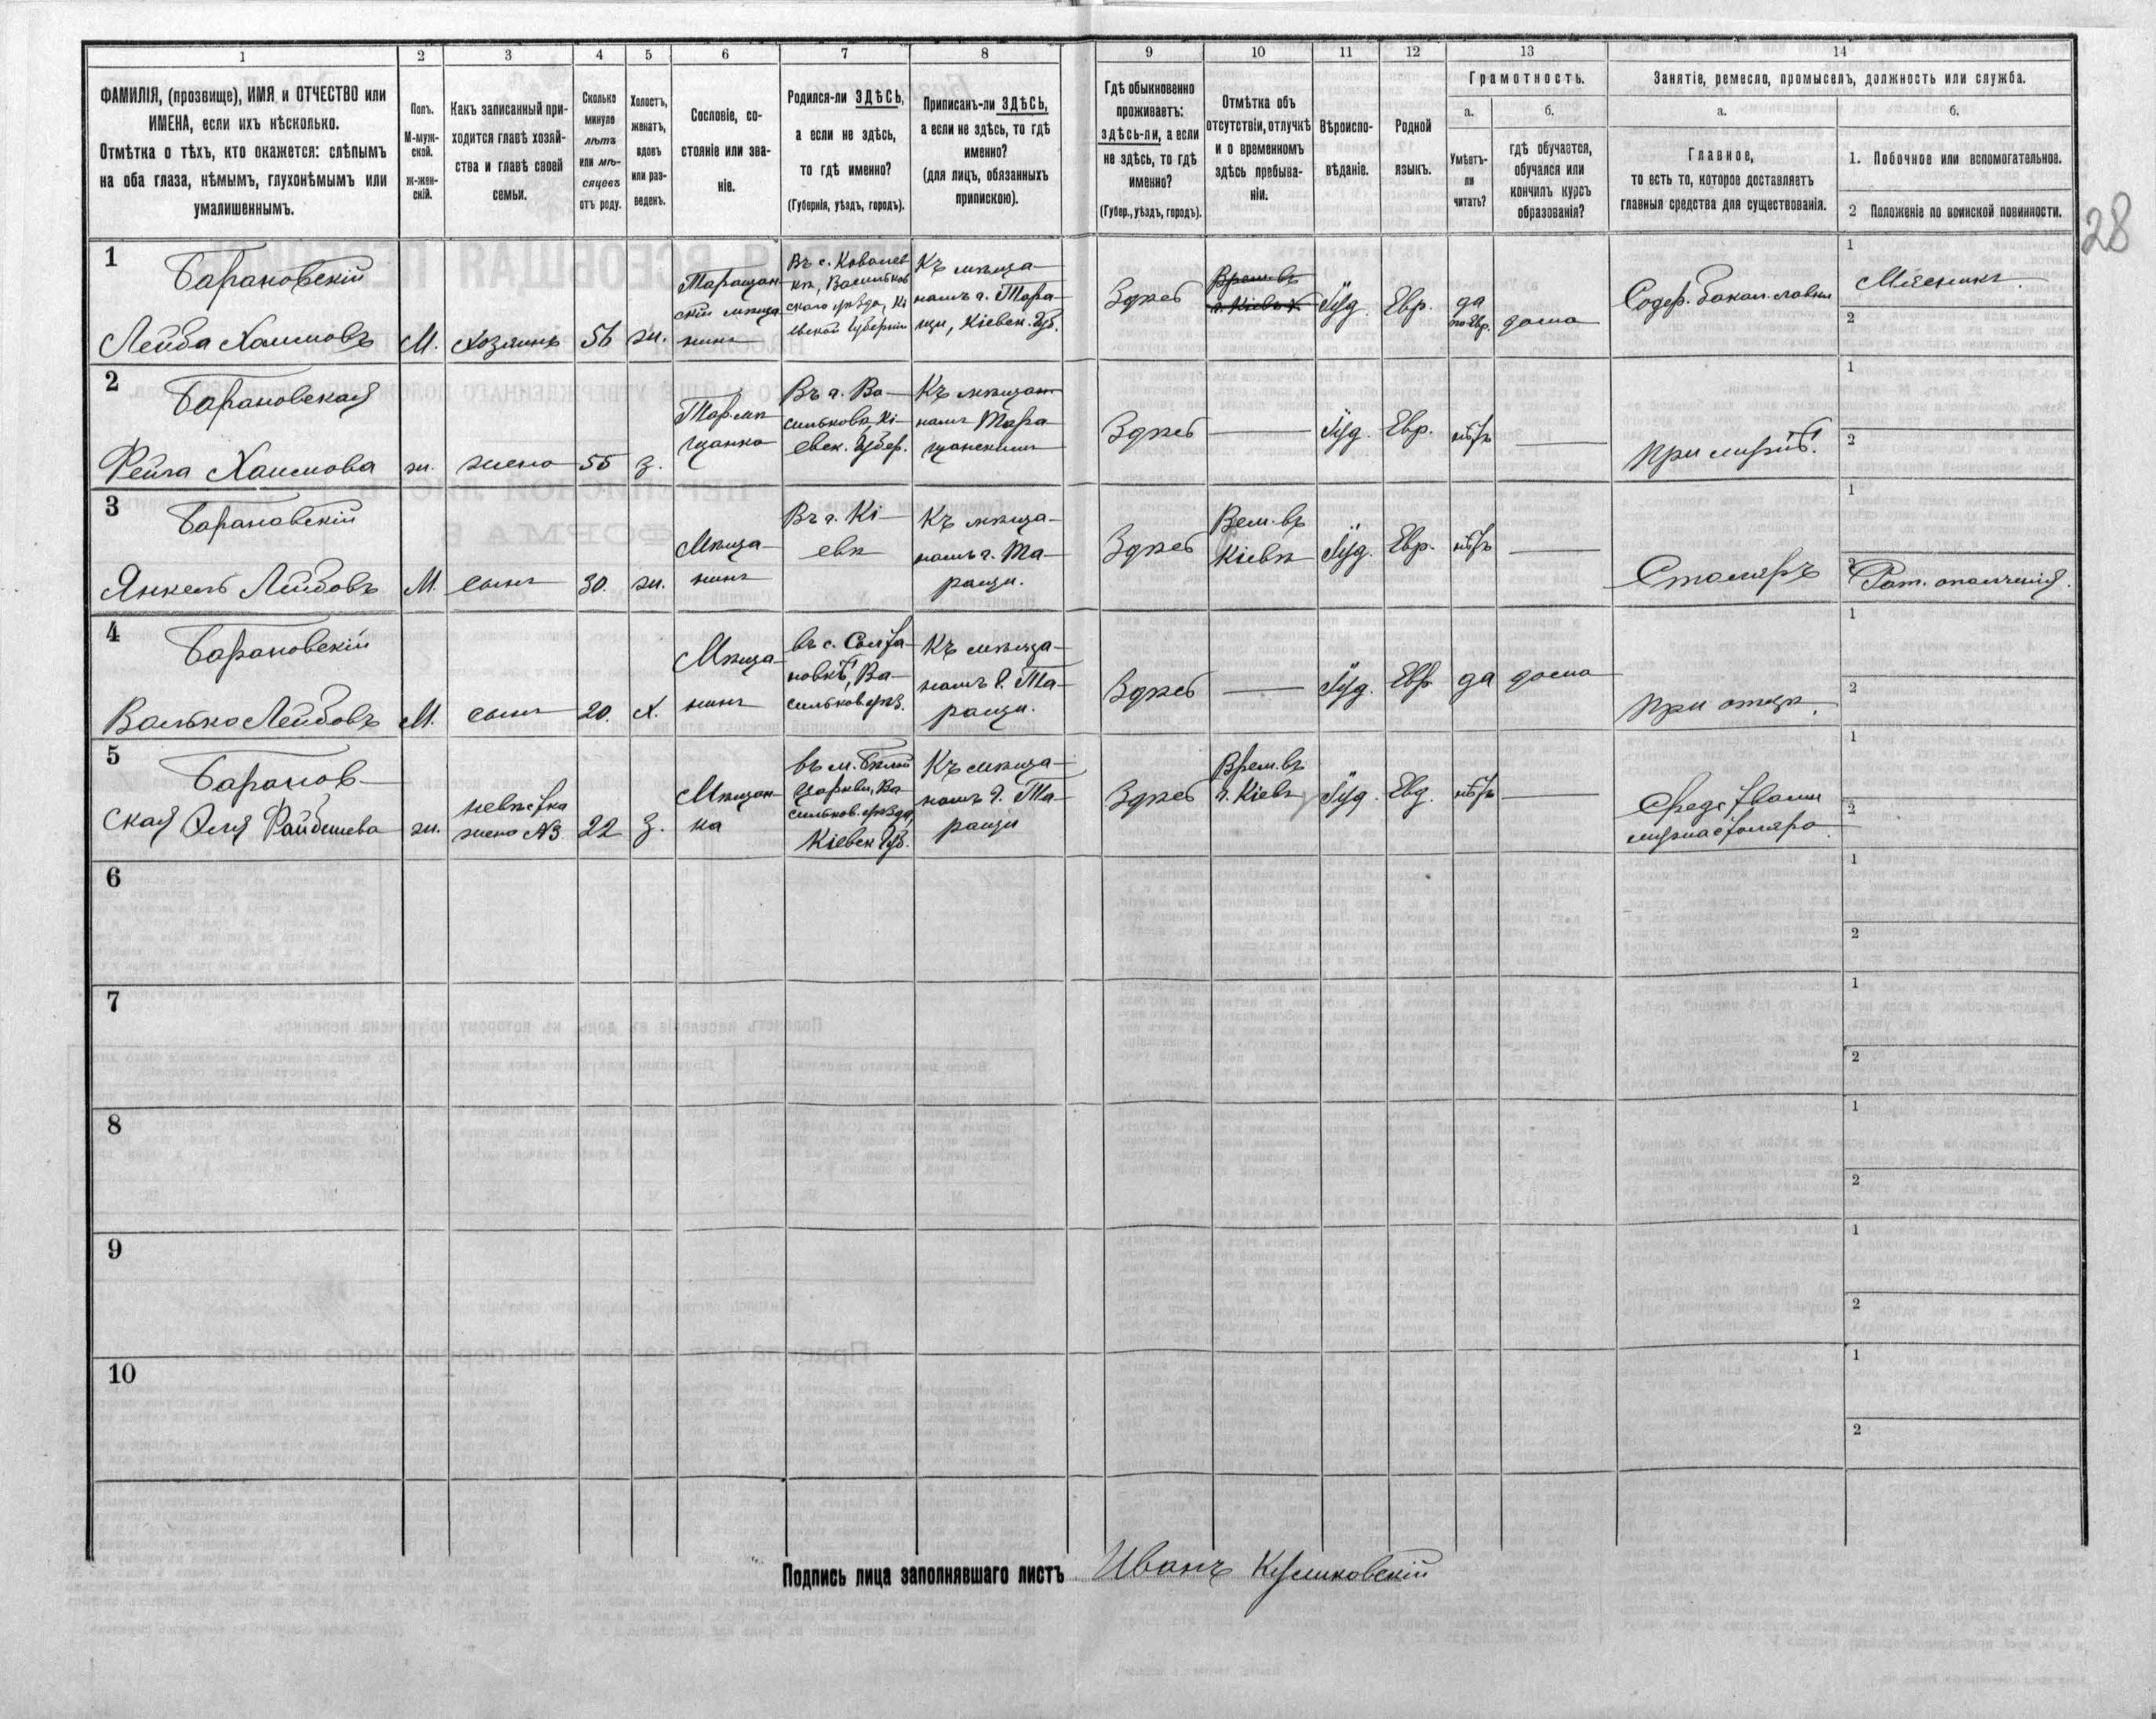 1
2
3
4
5
6
7
8
9
10
11
12
13
14
ФАМИЛІЯ, (прозвище), ИМЯ и ОТЧЕСТВО или
ИМЕНА, если ихъ нѣсколько.
Отмѣтка о тѣхъ, кто окажется: слѣпымъ
на оба глаза, нѣмымъ, глухонѣмымъ или
умалишеннымъ.
Полъ.
М-муж-
ской.
Ж-жен-
скій.
Какъ записанный при-
ходится главѣ хозяй-
ства и главѣ своей
семьи.
Сколько
минуло
лѣтъ
или мѣ-
сяцевъ
отъ роду.
Холостъ,
женатъ,
вдовъ
или раз-
веденъ.
Сословіе, со-
стояніе или зва-
ніе.
Родился-ли ЗДѢСЬ,
а если не здѣсь,
то гдѣ именно?
(Губернія, уѣздъ, городъ).
Приписанъ-ли ЗДѢСЬ,
а если не здѣсь, то гдѣ
именно?
(для лицъ, обязанныхъ
припискою).
Гдѣ обыкновенно
проживаетъ:
здѣсь-ли, а если
не здѣсь, то гдѣ
именно?
(Губер., уѣздъ, городъ).
Отмѣтка объ
отсутствіи, отлучкѣ
и о временномъ
здѣсь пребыва-
ніи.
Вѣроиспо-
вѣданіе.
Родной
языкъ.
Грамотность.
а.
б.
Умѣетъ-
ли
читать?
гдѣ обучается,
обучался или
кончилъ курсъ
образованія?
Занятіе, ремесло, промыселъ, должность или служба.
а.
б.
Главное,
то есть то, которое доставляетъ
главныя средства для существованія.
1. Побочное или вспомогательное.
2 Положеніе по воинской повинности.
28
1
Барановскій
Лейба Хаимовъ
М.
хозяинъ
56
ж.
Таращан-
скій мѣща-
нинъ
Въ с. Ковалев-
кѣ, Васильков-
скаго уѣзда, Кі-
евской губерніи
Къ мѣща-
намъ г. Тара-
щи, Кіевск. губ.
Здѣсь
Врем. въ
г. Кіевѣ
Іуд.
Евр.
да
по Евр.
дома
Содер. бакал. лавки
1
Мясникъ.
2
2
Барановская
Фейга Хаимова
ж.
жена
55
з.
Тар. мѣ-
щанка
Въ г. Ва-
силькова, Кі-
евск. Губер.
Къ мѣща-
намъ Тара-
щанскимъ
Здѣсь
Іуд.
Евр.
нѣтъ
при мужѣ.
1
2
3
Барановскій
Янкель Лейбовъ
М.
сынъ
30.
ж.
Мѣща-
нинъ
Въ г. Кі-
евѣ
Къ мѣща-
намъ г. Та-
ращи.
Здѣсь
Вем. въ
Кіевѣ
Іуд.
Евр.
нѣтъ
Столяръ
1
2
Рат. ополченія.
4
Барановскій
Волько Лейбовъ
М.
сынъ
20.
х.
Мѣща-
нинъ
Ва-
сильков. уѣз.
Къ мѣща-
намъ г. Та-
ращи.
Здѣсь
Іуд.
Евр.
да
дома
при отцѣ.
1
2
5
Баранов-
ская
ж.
невѣстка
жена №3
22
з.
Мѣщан-
ка
въ м. Бѣлой
Церкви, Ва-
сильков. уѣзда,
Кіевск. Губ.
Къ мѣща-
намъ г. Та-
ращи
Здѣсь
Врем. въ
г. Кіевѣ
Іуд.
Евр.
нѣтъ
Средствами
мужа столяра.
1
2
6
1
2
7
1
2
8
1
2
9
1
2
10
1
2
Подпись лица заполнявшаго листъ
Иванъ Куликовскій